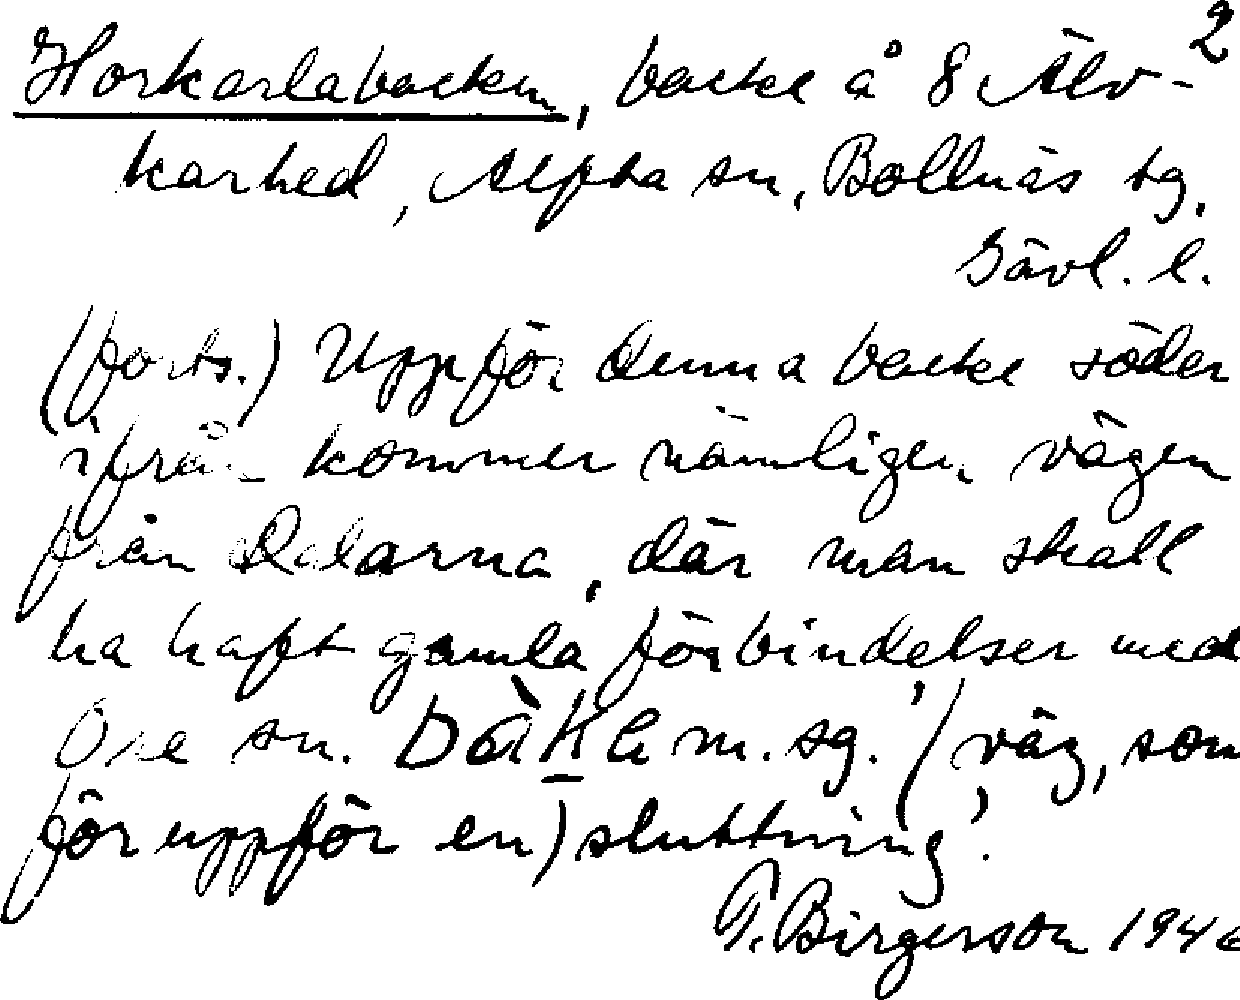 2
Horkarlabacken, backe å 8 Älv-
karhed, Alfta sn, Bollnäs tg.
Gävl. l.
(forts.) Uppför denna backe söder
ifrån kommer nämligen vägen
från Dalarna, där man skall
ha haft gamla förbindelser med
Ore sn. m. sg. '(väg, som
för uppför en) sluttning'.
T. Birgerson 1946